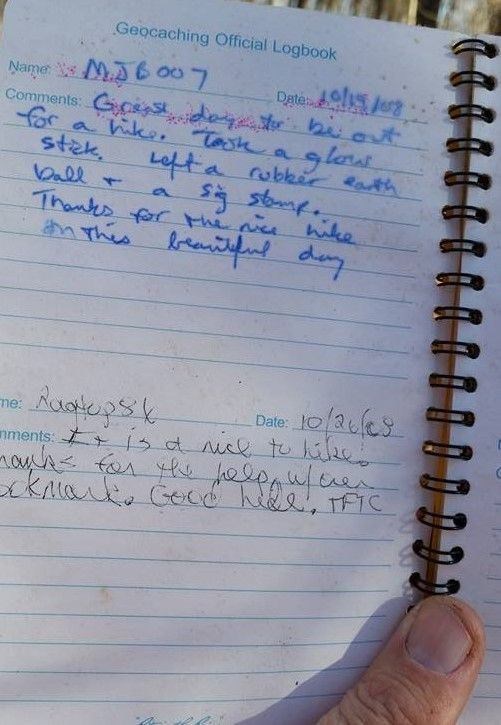 Geocaching Official Logbook
Name: MJB007
Date: 10/19/08
Comments: Great day to be out
for a hike. Took a glow
stick. Left a rubber earth
ball + a sig stamp.
Thanks for the nice hike
on this beautiful day
me:
Date: 10/26/08
mments: It is a nice to hike.
hanks for the help w/
ockmark. Good hide. TFTC